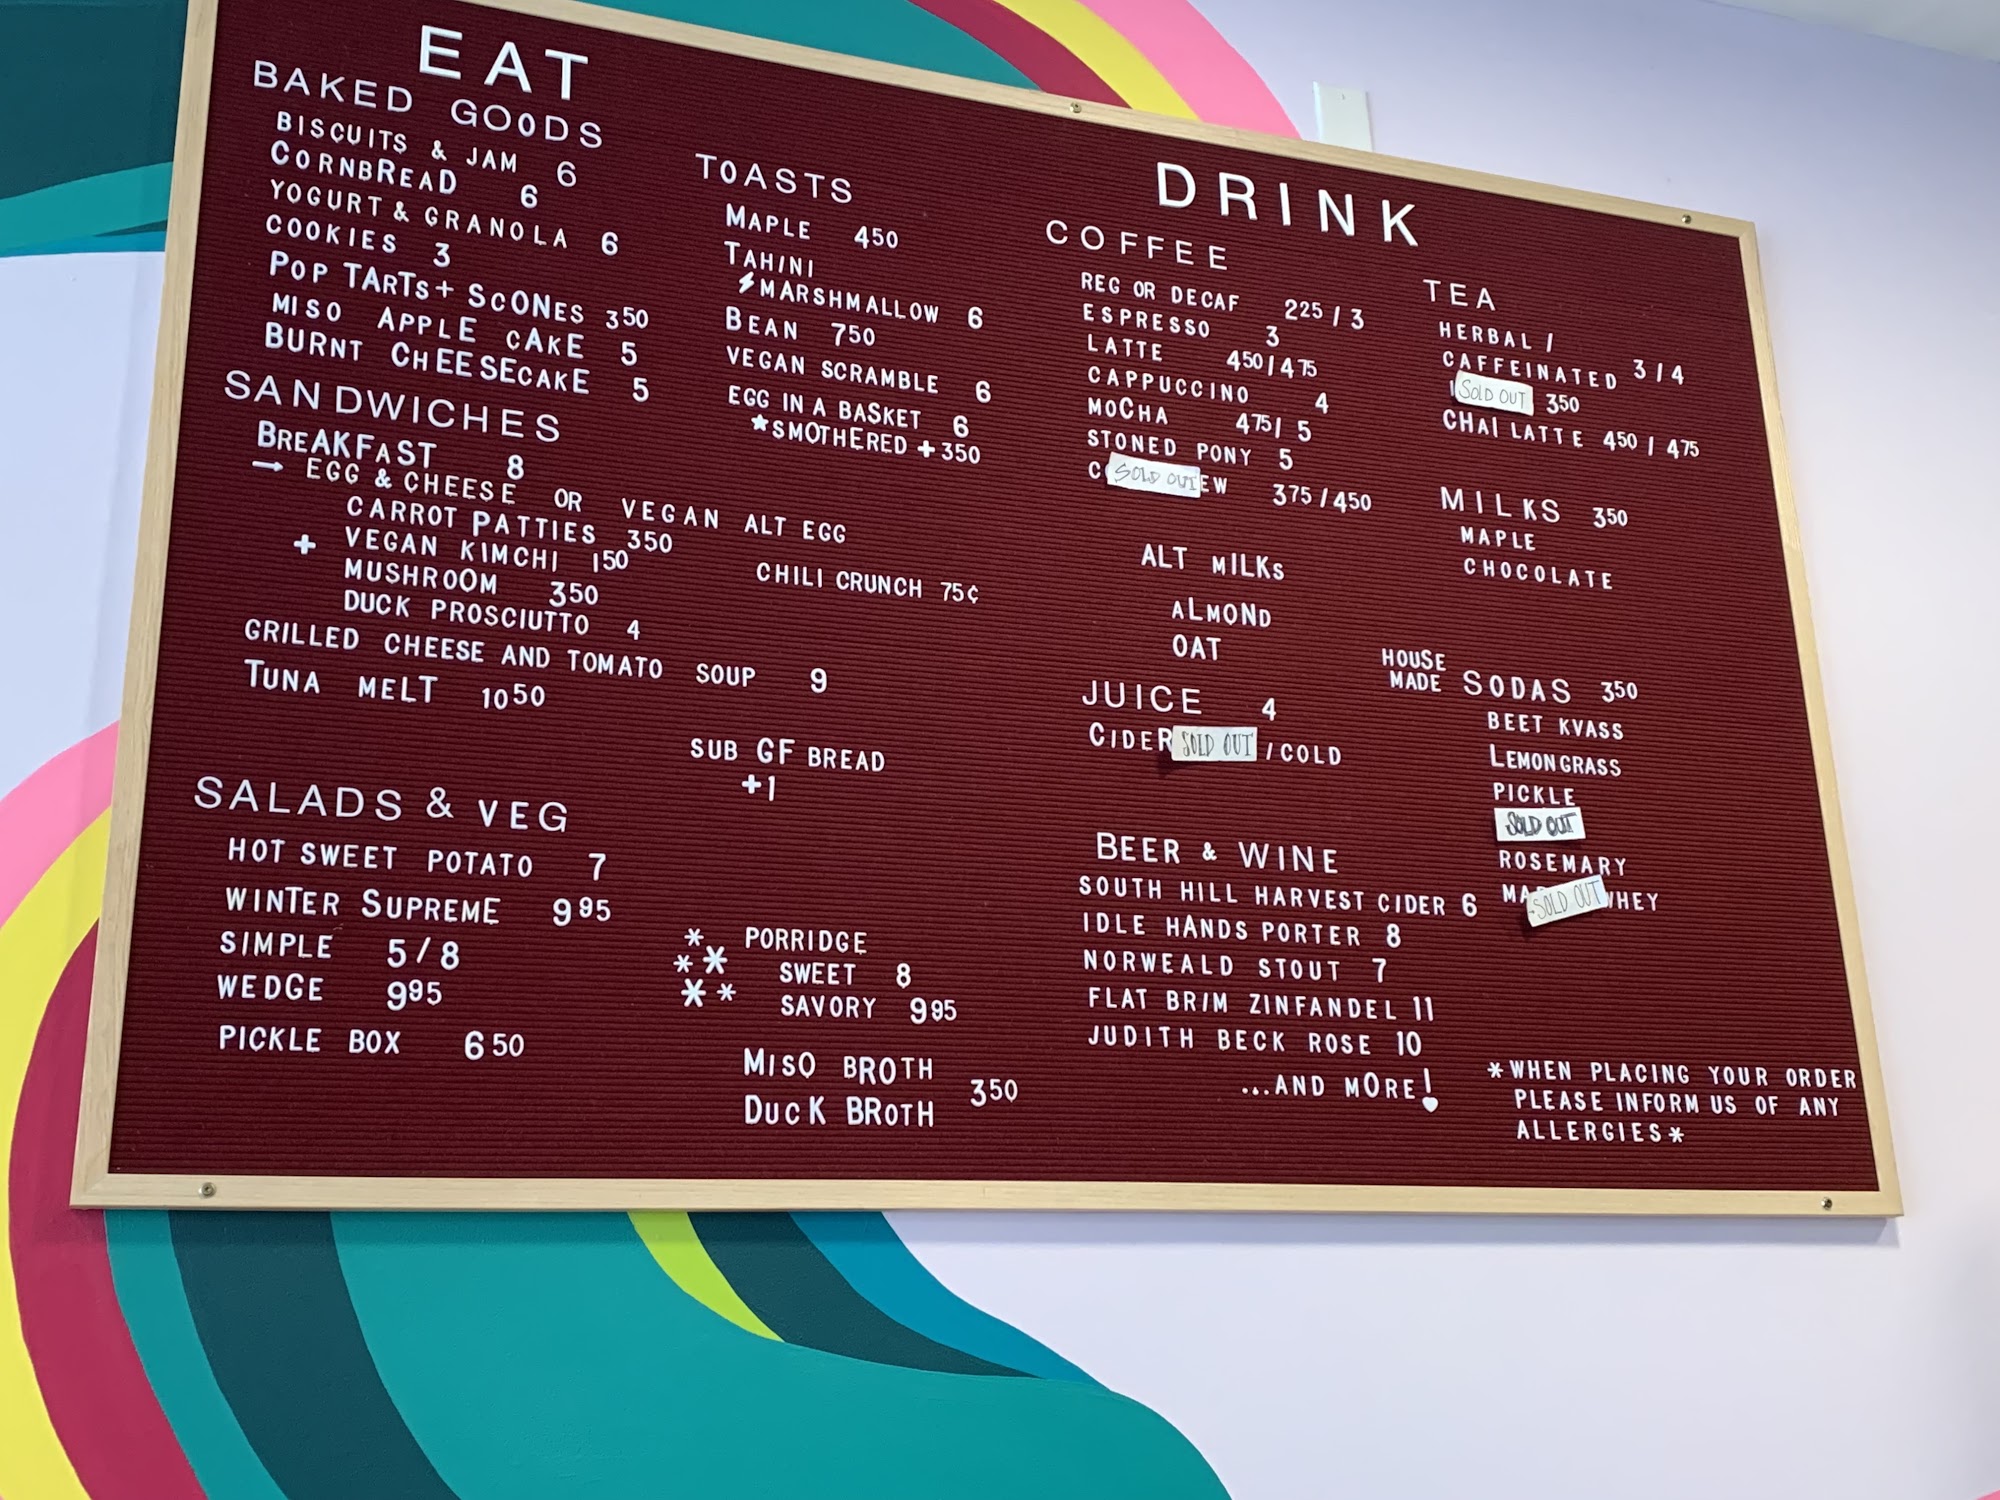 EAT
BAKED GOODS
BISCUITS & JAM 6
CORNBREAD 6
YOGURT & GRANOLA 6
COOKIES 3
POP TARTS + SCONES 350
MISO APPLE CAKE 5
BURNT CHEESECAKE 5
SANDWICHES
BREAKFAST 8
→ EGG & CHEESE OR VEGAN ALT EGG
CARROT PATTIES 350
+ VEGAN KIMCHI 150
MUSHROOM 350
DUCK PROSCIUTTO 4
CHILI CRUNCH 75¢
GRILLED CHEESE AND TOMATO SOUP 9
TUNA MELT 1050
SUB GF BREAD
+1
SALADS & VEG
HOT SWEET POTATO 7
WINTER SUPREME 995
SIMPLE 5/8
WEDGE 995
PICKLE BOX 650
TOASTS
MAPLE 450
TAHINI
MARSHMALLOW 6
BEAN 750
VEGAN SCRAMBLE 6
EGG IN A BASKET 6
*SMOTHERED +350
PORRIDGE
SWEET 8
SAVORY 995
MISO BROTH
DUCK BROTH 350
DRINK
COFFEE
REG OR DECAF 225 / 3
ESPRESSO 3
LATTE 450/475
CAPPUCCINO 4
MOCHA 475/ 5
STONED PONY 5
C SOLD OUT EW 375/450
ALT MILKS
ALMOND
OAT
JUICE 4
CIDER SOLD OUT / COLD
BEER & WINE
SOUTH HILL HARVEST CIDER 6
IDLE HANDS PORTER 8
NORWEALD STOUT 7
FLAT BRIM ZINFANDEL 11
JUDITH BECK ROSE 10
...AND MORE!
TEA
HERBAL /
CAFFEINATED 3 / 4
SOLD OUT 350
CHAI LATTE 450 / 475
MILKS 350
MAPLE
CHOCOLATE
HOUSE
MADE SODAS 350
BEET KVASS
LEMONGRASS
PICKLE
SOLD OUT
ROSEMARY
MA SOLD OUT WHEY
*WHEN PLACING YOUR ORDER
PLEASE INFORM US OF ANY
ALLERGIES*